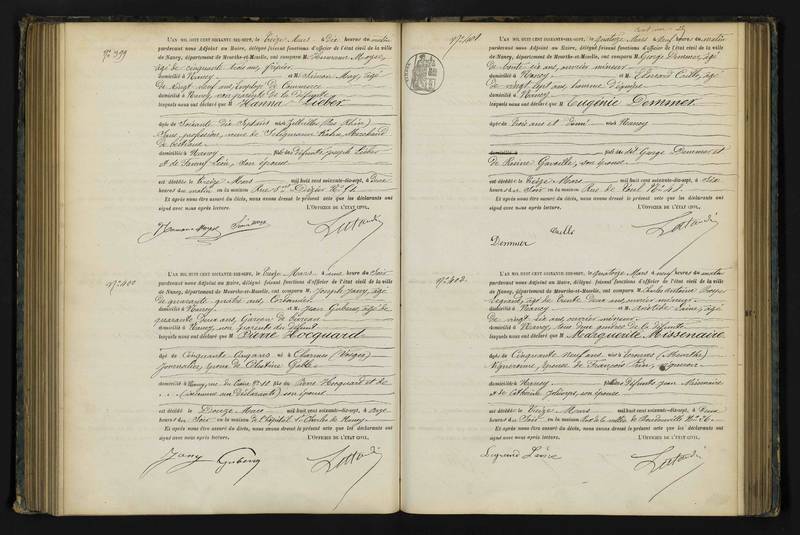 N° 399
L'AN MIL HUIT CENT SOIXANTE-DIX-SEPT, le treize Mars à dix heures du matin
pardevant nous Adjoint au Maire, délégué faisant fonctions d'officier de l'état civil de la ville
de Nancy, département de Meurthe-et-Moselle, ont comparu M. Hermann Mayer
âgé de cinquante trois ans, fripier
domicilié à Nancy et M. Simon May, âgé
de vingt neuf ans, Employé de Commerce
domicilié à Nancy, non parents de la défunte
lesquels nous ont déclaré que M Hanna Lieber
âgée de Soixante Dix Sept ans né à Zellwiller (Bas Rhin)
Sans profession, veuve de Seligmann Kahn, Marchand
de bestiaux
domiciliée à Nancy fille des défunts Joseph Lieber
et de Levi, son épouse
est décédée le treize Mars mil huit cent soixante-dix-sept, à
heures du matin en la maison Rue St Dizier N°
Et après nous être assuré du décès, nous avons dressé le présent acte que les déclarants ont
signé avec nous après lecture. L'OFFICIER DE L'ÉTAT CIVIL,
N° 400
L'AN MIL HUIT CENT SOIXANTE-DIX-SEPT, le treize Mars à une heure du Soir
pardevant nous Adjoint au Maire, délégué faisant fonctions d'officier de l'état civil de la ville
de Nancy, département de Meurthe-et-Moselle, ont comparu M. Joseph Jany, âgé
de quarante quatre ans, Cordonnier
domicilié à Nancy et M. Jean Gubeng, âgé de
quarante deux ans, Garçon de bureau
domicilié à Nancy, non parents du défunt
lesquels nous ont déclaré que M Pierre Hocquard
âgé de Cinquante Cinq ans né à Charmes (Vosges)
Journalier, époux de Célestine Gable
domicilié à Nancy, rue fils de Pierre Hocquard et de
son épouse
est décédé le Douze Mars mil huit cent soixante-dix-sept, à onze
heures du Soir en la maison de l'hôpital St Charles de Nancy
Et après nous être assuré du décès, nous avons dressé le présent acte que les déclarants ont
signé avec nous après lecture. L'OFFICIER DE L'ÉTAT CIVIL,
Jany Gubeng
N° 401
L'AN MIL HUIT CENT SOIXANTE-DIX-SEPT, le quatorze Mars à neuf heures du matin
pardevant nous Adjoint au Maire, délégué faisant fonctions d'officier de l'état civil de la ville
de Nancy, département de Meurthe-et-Moselle, ont comparu M. George Demmer, âgé
de trente six ans, ouvrier mineur
domicilié à Nancy et M. Cuillo, âgé
de vingt sept ans, homme d'équipe
domicilié à Nancy
lesquels nous ont déclaré que M Eugénie Demmer
âgée de trois ans et Demi née à Nancy
fille du dit George Demmer et
de son épouse
est décédée le treize Mars mil huit cent soixante-dix-sept, à six
heures du Soir en la maison Rue de Toul N° 48
Et après nous être assuré du décès, nous avons dressé le présent acte que les déclarants ont
signé avec nous après lecture. L'OFFICIER DE L'ÉTAT CIVIL,
Demmer
N° 402
L'AN MIL HUIT CENT SOIXANTE-DIX-SEPT, le quatorze Mars à neuf heures du matin
pardevant nous Adjoint au Maire, délégué faisant fonctions d'officier de l'état civil de la ville
de Nancy, département de Meurthe-et-Moselle, ont comparu M. Charles Antoine Prosper
Legrand, âgé de trente deux ans, ouvrier mineur
domicilié à Nancy et M. Aristide Laine, âgé
de vingt six ans, ouvrier mineur
domicilié à Nancy, tous deux gendres de la défunte
lesquels nous ont déclaré que M Marguerite Missenaire
âgée de Cinquante Neuf ans née à (Meurthe)
Vigneronne, épouse de François vigneron
domiciliée à Nancy fille des défunts Jean Missenaire
et de Catherine son épouse
est décédée le treize Mars mil huit cent soixante-dix-sept, à Deux
heures du Soir en la maison N° 26
Et après nous être assuré du décès, nous avons dressé le présent acte que les déclarants ont
signé avec nous après lecture. L'OFFICIER DE L'ÉTAT CIVIL,
Legrand Laine